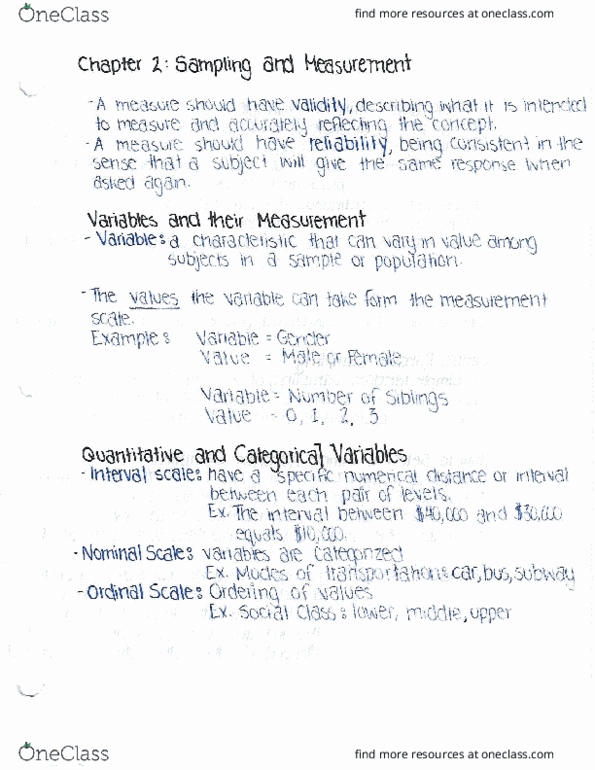 OneClass
find more resources at oneclass.com
Chapter 2: Sampling and Measurement
- A measure should have validity, describing what it is intended
to measure and accurately reflecting the concept.
- A measure should have reliability, being consistent in the
sense that a subject will give the same response when
asked again.
Variables and their Measurement
- Variable: a characteristic that can vary in value among
subjects in a sample or population.
- The values the variable can take form the measurement
scale.
Example: Variable = Gender
Value = Male or Female
Variable = Number of Siblings
Value = 0, 1, 2, 3
Quantitative and Categorical Variables
- Interval scale: have a specific numerical distance or interval
between each pair of levels.
Ex. The interval between $40,000 and $30,000
equals $10,000.
- Nominal Scale: variables are categorized
Ex. Modes of transportation: car, bus, subway
- Ordinal Scale: Ordering of values
Ex. Social Class: lower, middle, upper
OneClass
find more resources at oneclass.com